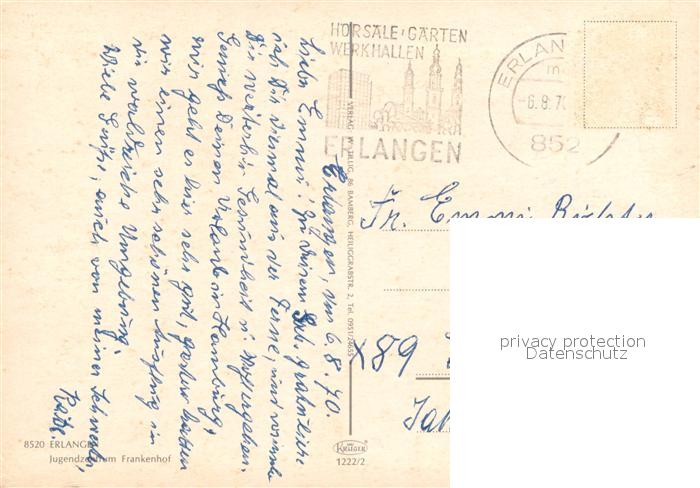 HÖRSÄLE·GÄRTEN
WERKHALLEN
ERLANGEN
ERLAN
-6.8.70
852
Erlangen, den 6.8.70.
Liebe Emmi! Zu Deinem Geb. gratuliere
ich Dir diesmal aus der Ferne, und wünsche
Dir weiterhin Gesundheit u. Wohlergehen.
Genieße Deinen Urlaub in Hamburg,
mir geht es hier sehr gut, gestern hatten
wir einen sehr schönen Ausflug in
die waldreiche Umgebung.
Viele Grüße, auch von meiner Schwester,
Käthe.
Fr. Emmi
X89
VERLAG W. TILLIG, 86 BAMBERG, HEILIGGRABSTR. 2, Tel. 0951/24655
8520 ERLANGEN
Jugendzentrum Frankenhof
KRÜGER
1222/2
privacy protection
Datenschutz